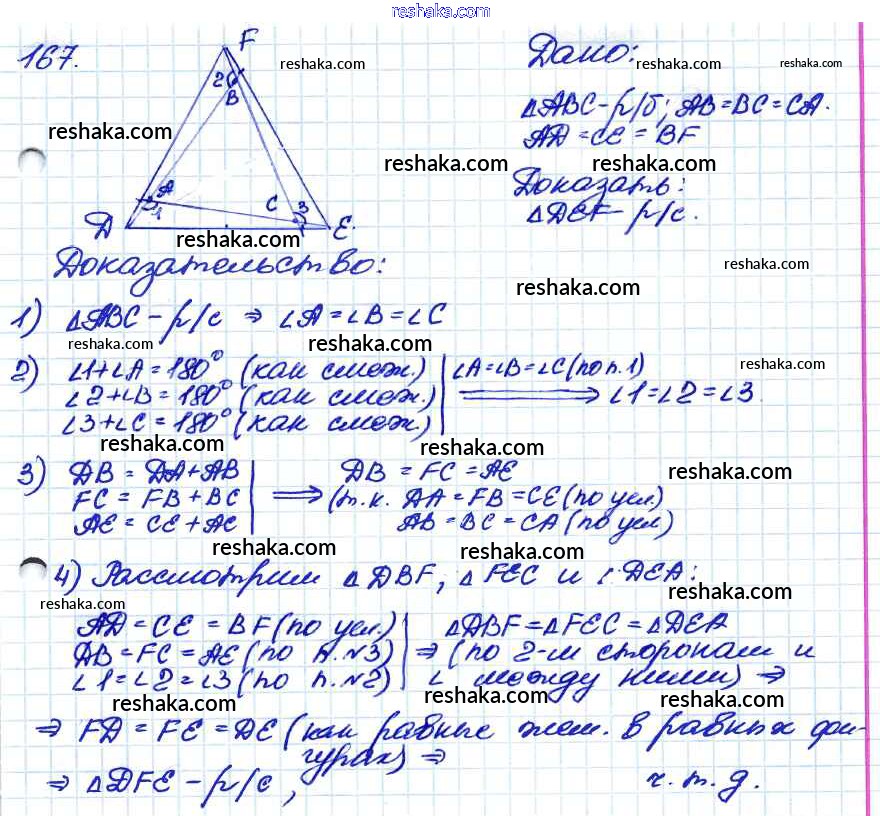 reshaka.com
167.
F
2
B
A
1
C
3
D
E
reshaka.com
reshaka.com
reshaka.com
Дано:
reshaka.com
△ABC - р/б; AB = BC = CA.
AD = CE = BF
reshaka.com
reshaka.com
Доказать:
△DEF - р/с.
Доказательство:
reshaka.com
reshaka.com
1) △ABC - р/с ⇒ ∠A = ∠B = ∠C
reshaka.com
reshaka.com
2) ∠1+∠A = 180° (как смеж.) | ∠A=∠B=∠C (по п.1)
reshaka.com
∠2+∠B = 180° (как смеж.) ⟹ ∠1=∠2=∠3.
∠3+∠C = 180° (как смеж.)
reshaka.com
reshaka.com
3) DB = DA + AB | DB = FC = AE
reshaka.com
FC = FB + BC ⟹ (т.к. DA = FB = CE (по усл)
AE = CE + AC | AB = BC = CA (по усл)
reshaka.com
reshaka.com
4) Рассмотрим △DBF, △FEC и △DEA:
reshaka.com
reshaka.com
reshaka.com
AD = CE = BF (по усл.) | △DBF = △FEC = △DEA
DB = FC = AE (по п.№3) ⇒ (по 2-м сторонам и
∠1 = ∠2 = ∠3 (по п.№2) | ∠ между ними) ⇒
reshaka.com
reshaka.com
reshaka.com
reshaka.com
⇒ FD = FE = DE (как равные элем. в равных фи-
гурах) ⇒
⇒ △DFE - р/с, ч.т.д.
reshaka.com
reshaka.com